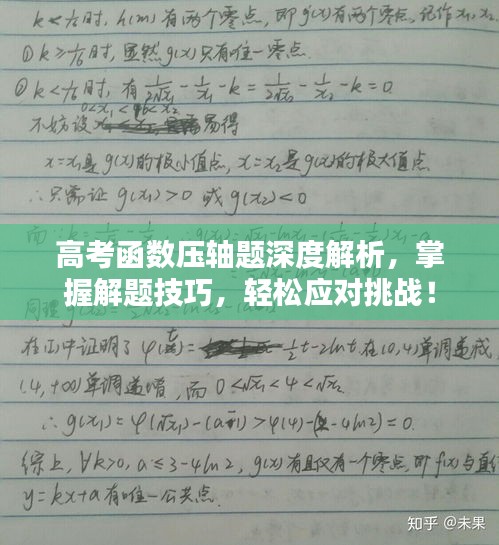 k<1/16时, h(m)有两个零点, 即g'(x)有两个零点, 记作x₁,x₂
①k≥1/16时, 显然g(x)只有唯一零点.
②k<1/16时, 有 1/(2√x₁) - 1/x₁ - k = 1/(2√x₂) - 1/x₂ - k = 0
0<x₁<16<x₂
不妨设 易得
x=x₁是g(x)的极小值点, x=x₂是g(x)的极大值点
∴只需证 g(x₁)>0 或 g(x₂)<0
高考函数压轴题深度解析，掌
握解题技巧，轻松应对挑战！
在(1)中证明了 φ(t)= 1/2t-2lnt 在(0,4)单调递减
(4,+∞)单调递增, 而 0<√x₁<4<√x₂
∴g(x₁)=φ(√x₁)-(a+1)>φ(4)-(-4ln2)=0.
综上, ∀k>0, a≤3-4ln2, g(x)有且仅有一个零点, 即f(x)与直线
y=kx+a有唯一公共点.
知乎 @未果